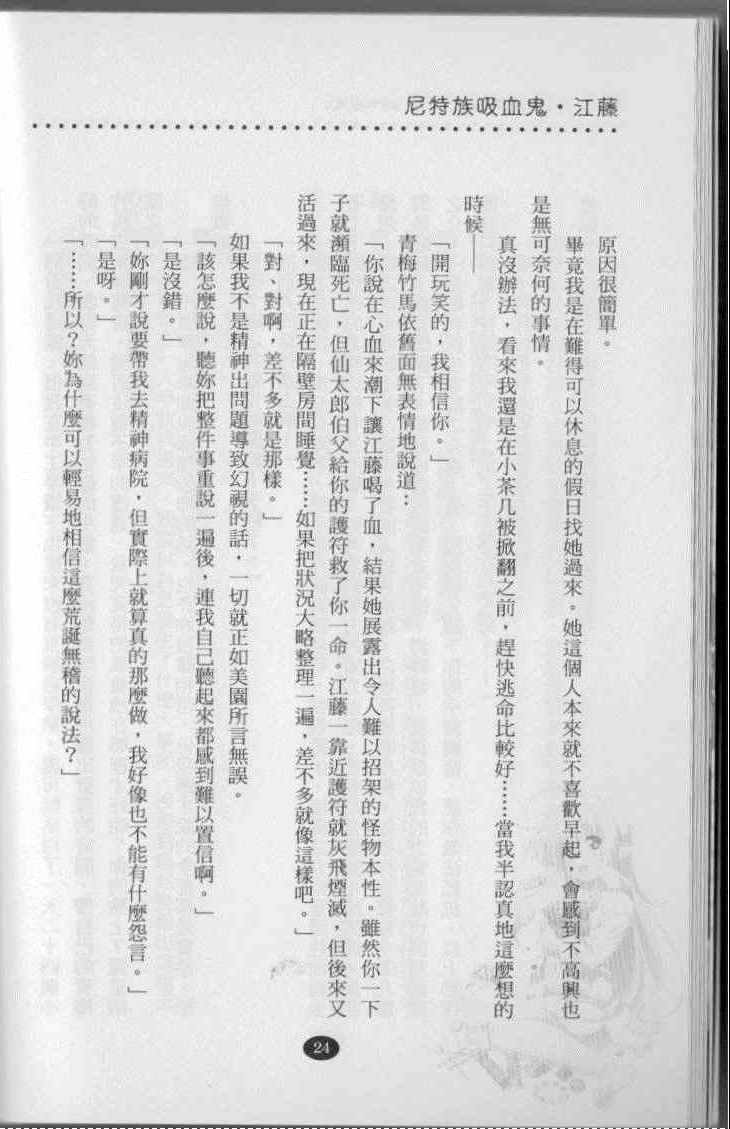 尼特族吸血鬼・江藤
原因很簡單。
畢竟我是在難得可以休息的假日找她過來。她這個人本來就不喜歡早起，會感到不高興也
是無可奈何的事情。
真沒辦法，看來我還是在小茶几被掀翻之前，趕快逃命比較好……當我半認真地這麼想的
時候——
「開玩笑的，我相信你。」
青梅竹馬依舊面無表情地說道：
「你說在心血來潮下讓江藤喝了血，結果她展露出令人難以招架的怪物本性。雖然你一下
子就瀕臨死亡，但仙太郎伯父給你的護符救了你一命。江藤一靠近護符就灰飛煙滅，但後來又
活過來，現在正在隔壁房間睡覺……如果把狀況大略整理一遍，差不多就像這樣吧。」
「對、對啊，差不多就是那樣。」
如果我不是精神出問題導致幻視的話，一切就正如美園所言無誤。
「該怎麼說，聽妳把整件事重說一遍後，連我自己聽起來都感到難以置信啊。」
「是沒錯。」
「妳剛才說要帶我去精神病院，但實際上就算真的那麼做，我好像也不能有什麼怨言。」
「是呀。」
「……所以？妳為什麼可以輕易地相信這麼荒誕無稽的說法？」
24